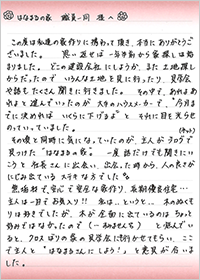 はなまるの家 職員一同 様へ
この度は私達の家作りに携わって頂き、本当にありがとうございました。 思い返せば一年半前から家探しは始まりました。どこの建設会社にしようか、また土地探しからだったので いろんな土地を見に行ったり、見学会や話もたくさん聞きに行きました。その中で、あれよあれよと進んでいたのが 大手のハウスメーカーで、"今月までに決めれば いくらに下げます"と それに目を光らせのっていました。
その後と同時に気になっていたのが、主人がブログで見つけた "はなまるの家"。一度 話だけでも聞きにいこうと 社長さんに出会い、出会った時から、人の良さがにじみ出ている ステキな方でした
無垢材で安心で安全な家作り、長期優良住宅…
主人は一目でお気に入り!! 私は…というと… 木のぬくもりは好きでしたが、木が全面に出ているのはちょっと好めずではなかったので(一部のせんち) と悩んでいると、クロスばりの家の見学会に行かせてもらい、ここで主人と "はなまるさんにしよう!"と意見が合いました。